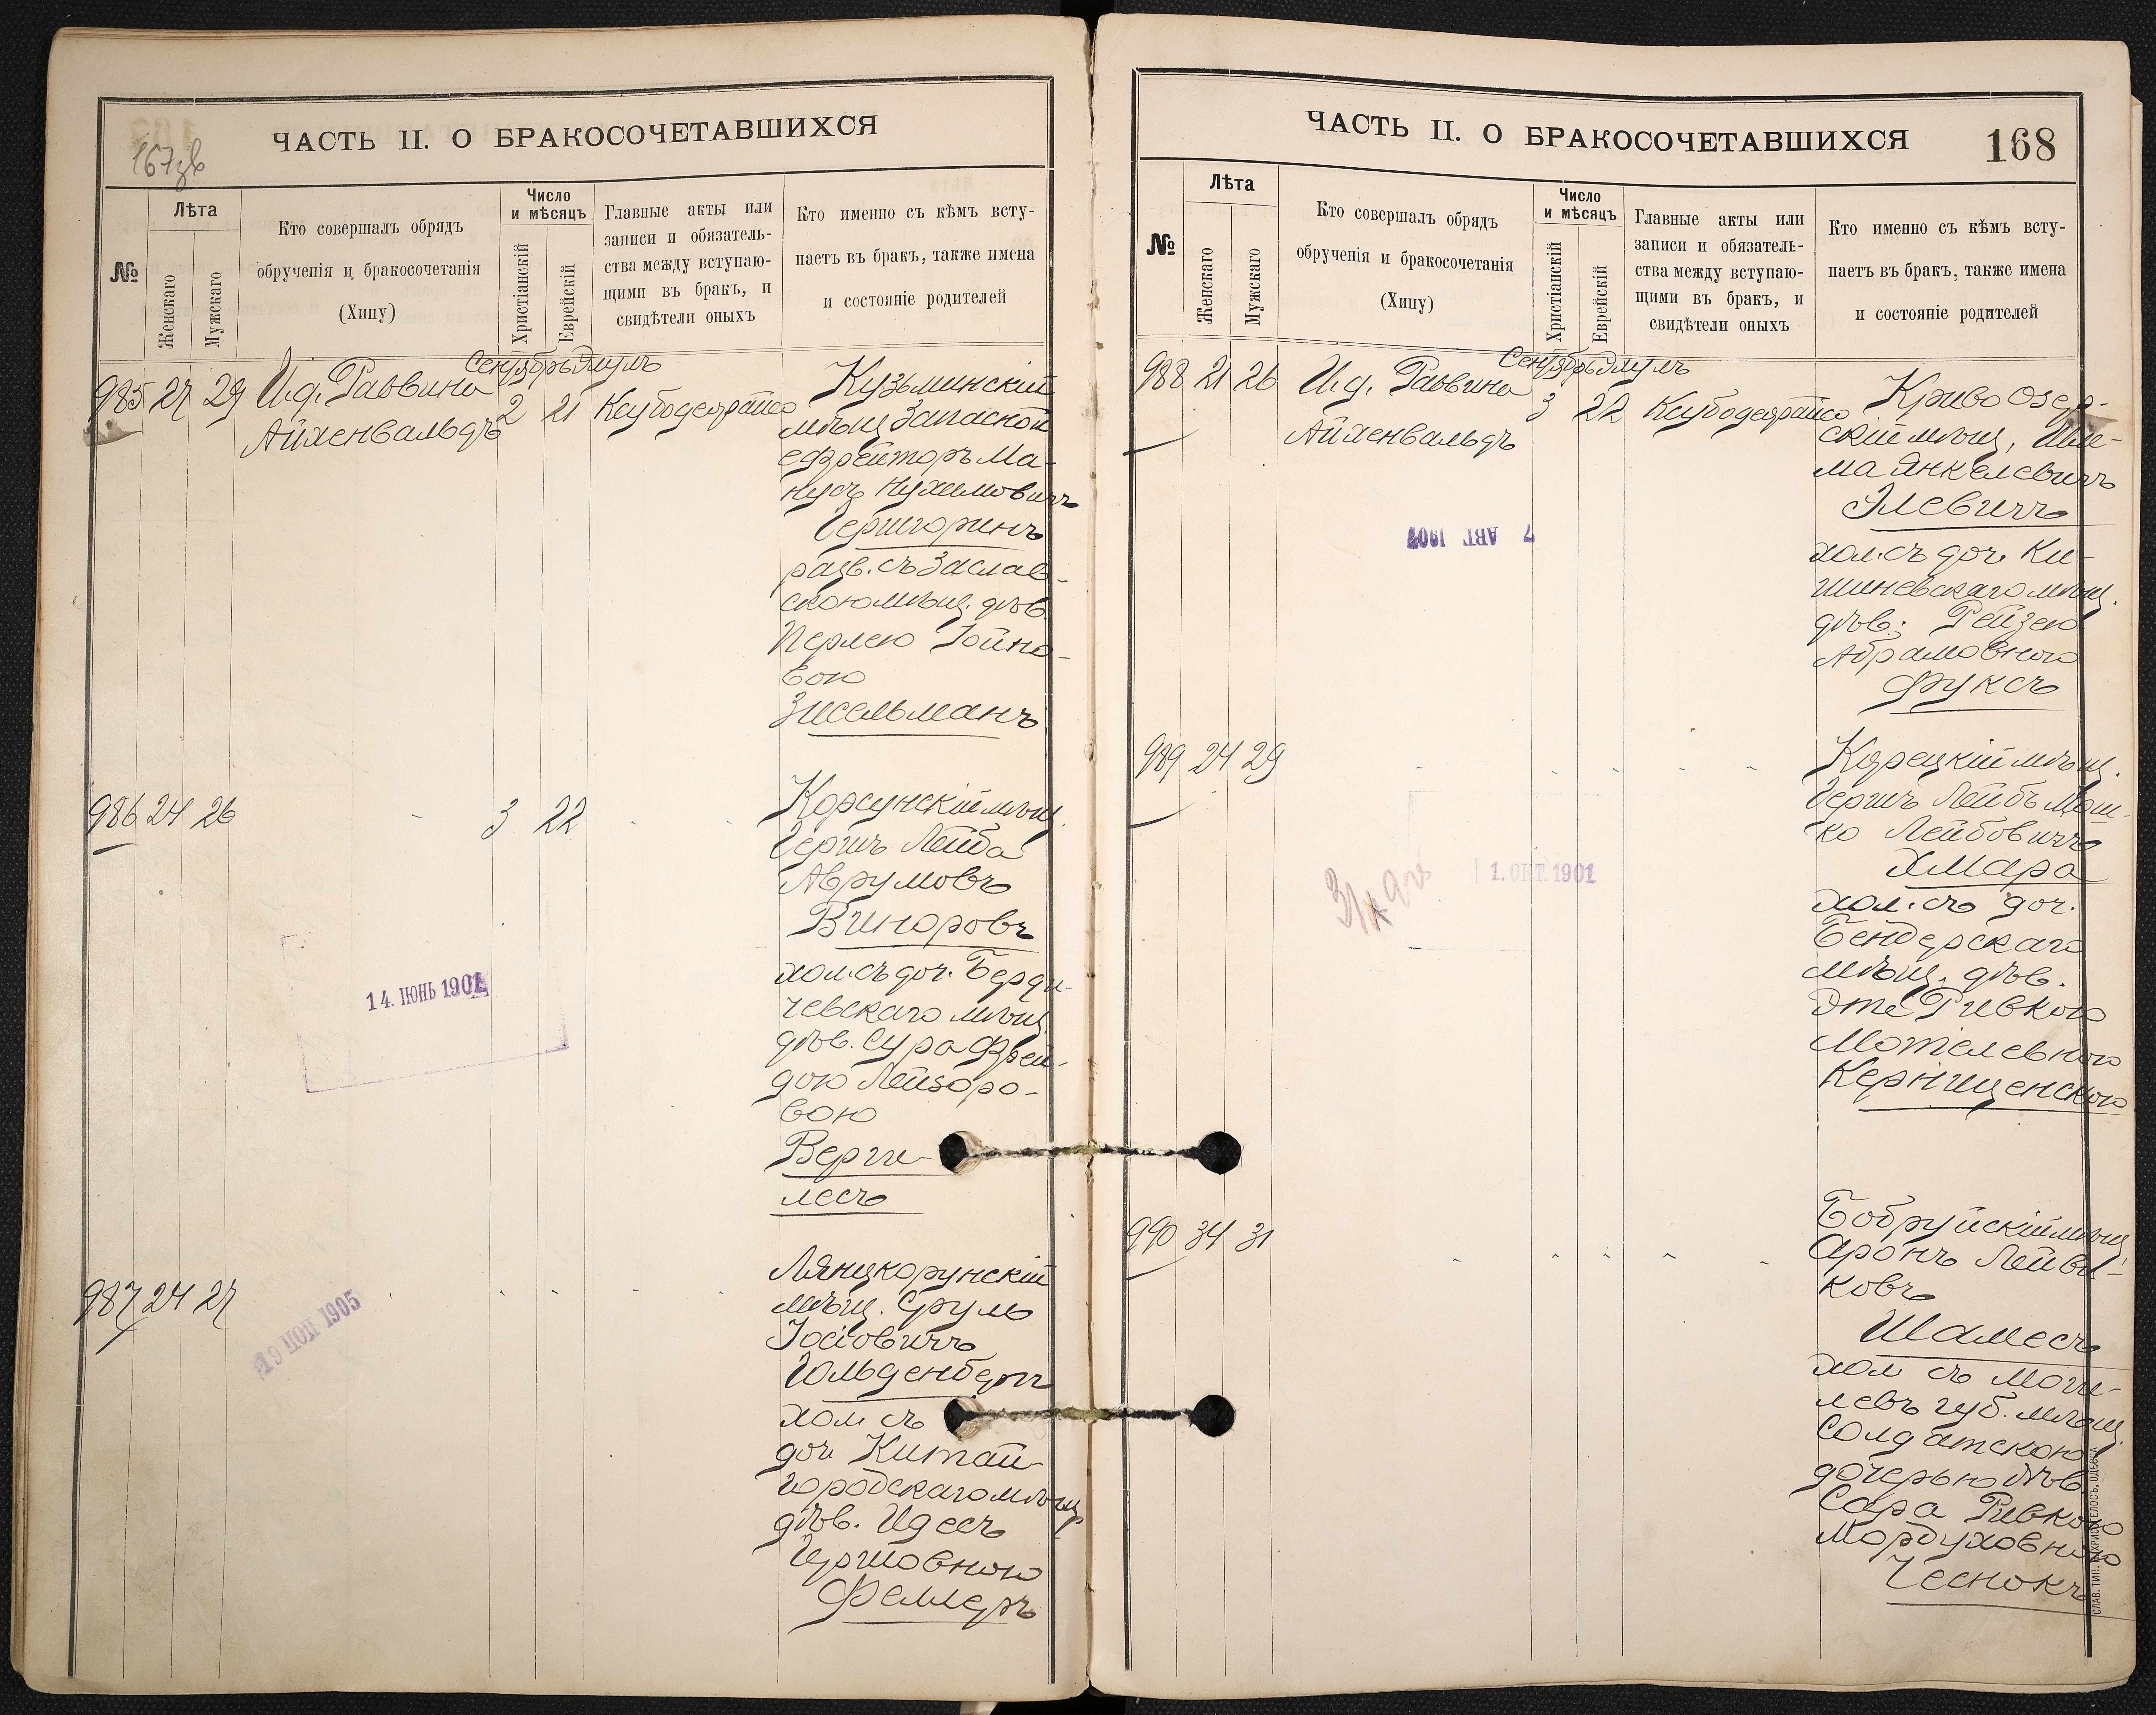 ЧАСТЬ II. О БРАКОСОЧЕТАВШИХСЯ
167зв
№
Лѣта
Женскаго
Мужскаго
Кто совершалъ обрядъ
обрученія и бракосочетанія
(Хипу)
Число
и мѣсяцъ
Христіанскій
Еврейскій
Главные акты или
записи и обязатель-
ства между вступаю-
щими въ бракъ, и
свидѣтели оныхъ
Кто именно съ кѣмъ всту-
паетъ въ бракъ, также имена
и состояніе родителей
Сентябрь Элулъ
985 27 29 И.д. Раввина
Айхенвальдъ
2 21
Кузьминскій
мѣщ. Запасной
ефрейторъ Ма-
нусъ Нухимовичъ
Гершгоринъ
разв. съ Заслав-
скою мѣщ. дѣв.
Перлею Іойно-
вою
Зисельманъ
986 24 26 3 22
Корсунскій мѣщ.
Гершъ Лейба
Аврумовъ
Виноровъ
хол. съ доч. Берди-
чевскаго мѣщ.
дѣв. Сура Фрей-
дою Лейзоро-
вою
Верги-
лесъ
14. ІЮНЬ 1902
987 24 27
Лянцкорунскій
мѣщ. Сруль
Іосіовичъ
Гольденбергъ
хол. съ
доч. Китай-
городскаго мѣщ.
дѣв. Идесъ
Гершовною
Феллеръ
1905
ЧАСТЬ II. О БРАКОСОЧЕТАВШИХСЯ
168
№
Лѣта
Женскаго
Мужскаго
Кто совершалъ обрядъ
обрученія и бракосочетанія
(Хипу)
Число
и мѣсяцъ
Христіанскій
Еврейскій
Главные акты или
записи и обязатель-
ства между вступаю-
щими въ бракъ, и
свидѣтели оныхъ
Кто именно съ кѣмъ всту-
паетъ въ бракъ, также имена
и состояніе родителей
Сентябрь Элулъ
988 21 26 И.д. Раввина
Айхенвальдъ
3 22
Криво Озер-
скій мѣщ.
ма Янкелевичъ
Элевичъ
хол. съ доч. Ки-
шиневскаго мѣщ.
дѣв. Рейзею
Абрамовною
Фуксъ
7 АВГ 1902
989 24 29
Корецкій мѣщ.
Гершъ Лейбъ Мош-
ко Лейбовичъ
Хмара
хол. съ доч.
Бендерскаго
мѣщ. дѣв.
Эте Ривкою
Мотелевною
Керниценскою
1. ОКТ. 1901
990 34 31
Бобруйскій мѣщ.
Аронъ Лейви-
ковъ
Шамесъ
хол съ Моги-
левъ губ. мѣщ.
Солдатскою
дочерью дѣв.
Сара Ривкою
Мордуховною
Чеснокъ